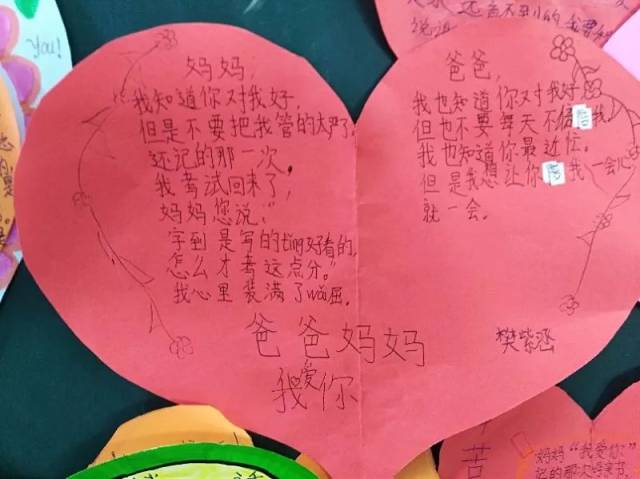 妈妈，
我知道你对我好，
但是不要把我管的太严了，
还记的那一次。
我考试回来了，
妈妈您说：“
字到是写的ting好看的，
怎么才考这点分。”
我心里装满了wěi屈。
爸爸，
我也知道你对我好
但也不要每天不陪我！
我也知道你最近忙。
但是我想让你陪我一会儿
就一会。
爸爸妈妈
我爱你
樊紫涵
You!
说
苦
妈妈“我爱你”